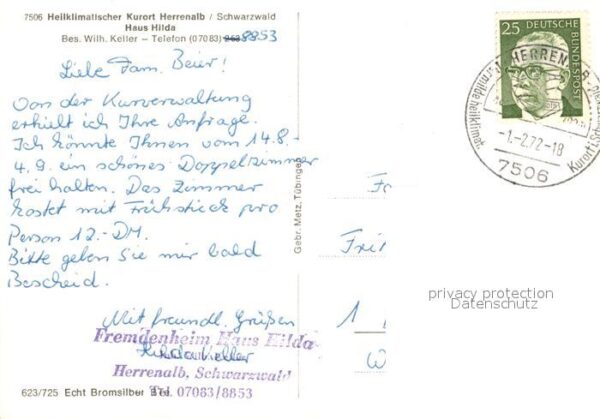 7506 Heilklimatischer Kurort Herrenalb / Schwarzwald
Haus Hilda
Bes. Wilh. Keller – Telefon (07083) 8853
Liebe Fam. Beier!
Von der Kurverwaltung
erhielt ich Ihre Anfrage.
Ich könnte Ihnen vom 14.8.
4.9. ein schönes Doppelzimmer
frei halten. Das Zimmer
kostet mit Frühstück pro
Person 12.-DM.
Bitte geben Sie mir bald
Bescheid.
Mit freundl. Grüßen
Hilda Keller
Fremdenheim Haus Hilda
Herrenalb, Schwarzwald
Tel. 07083/8853
623/725 Echt Bromsilber
Gebr. Metz, Tübingen
25 DEUTSCHE BUNDESPOST
HERRENALB
-1.-2.72-18
7506
heilklimat.
Kurort i. Schwarzwald
1
privacy protection
Datenschutz